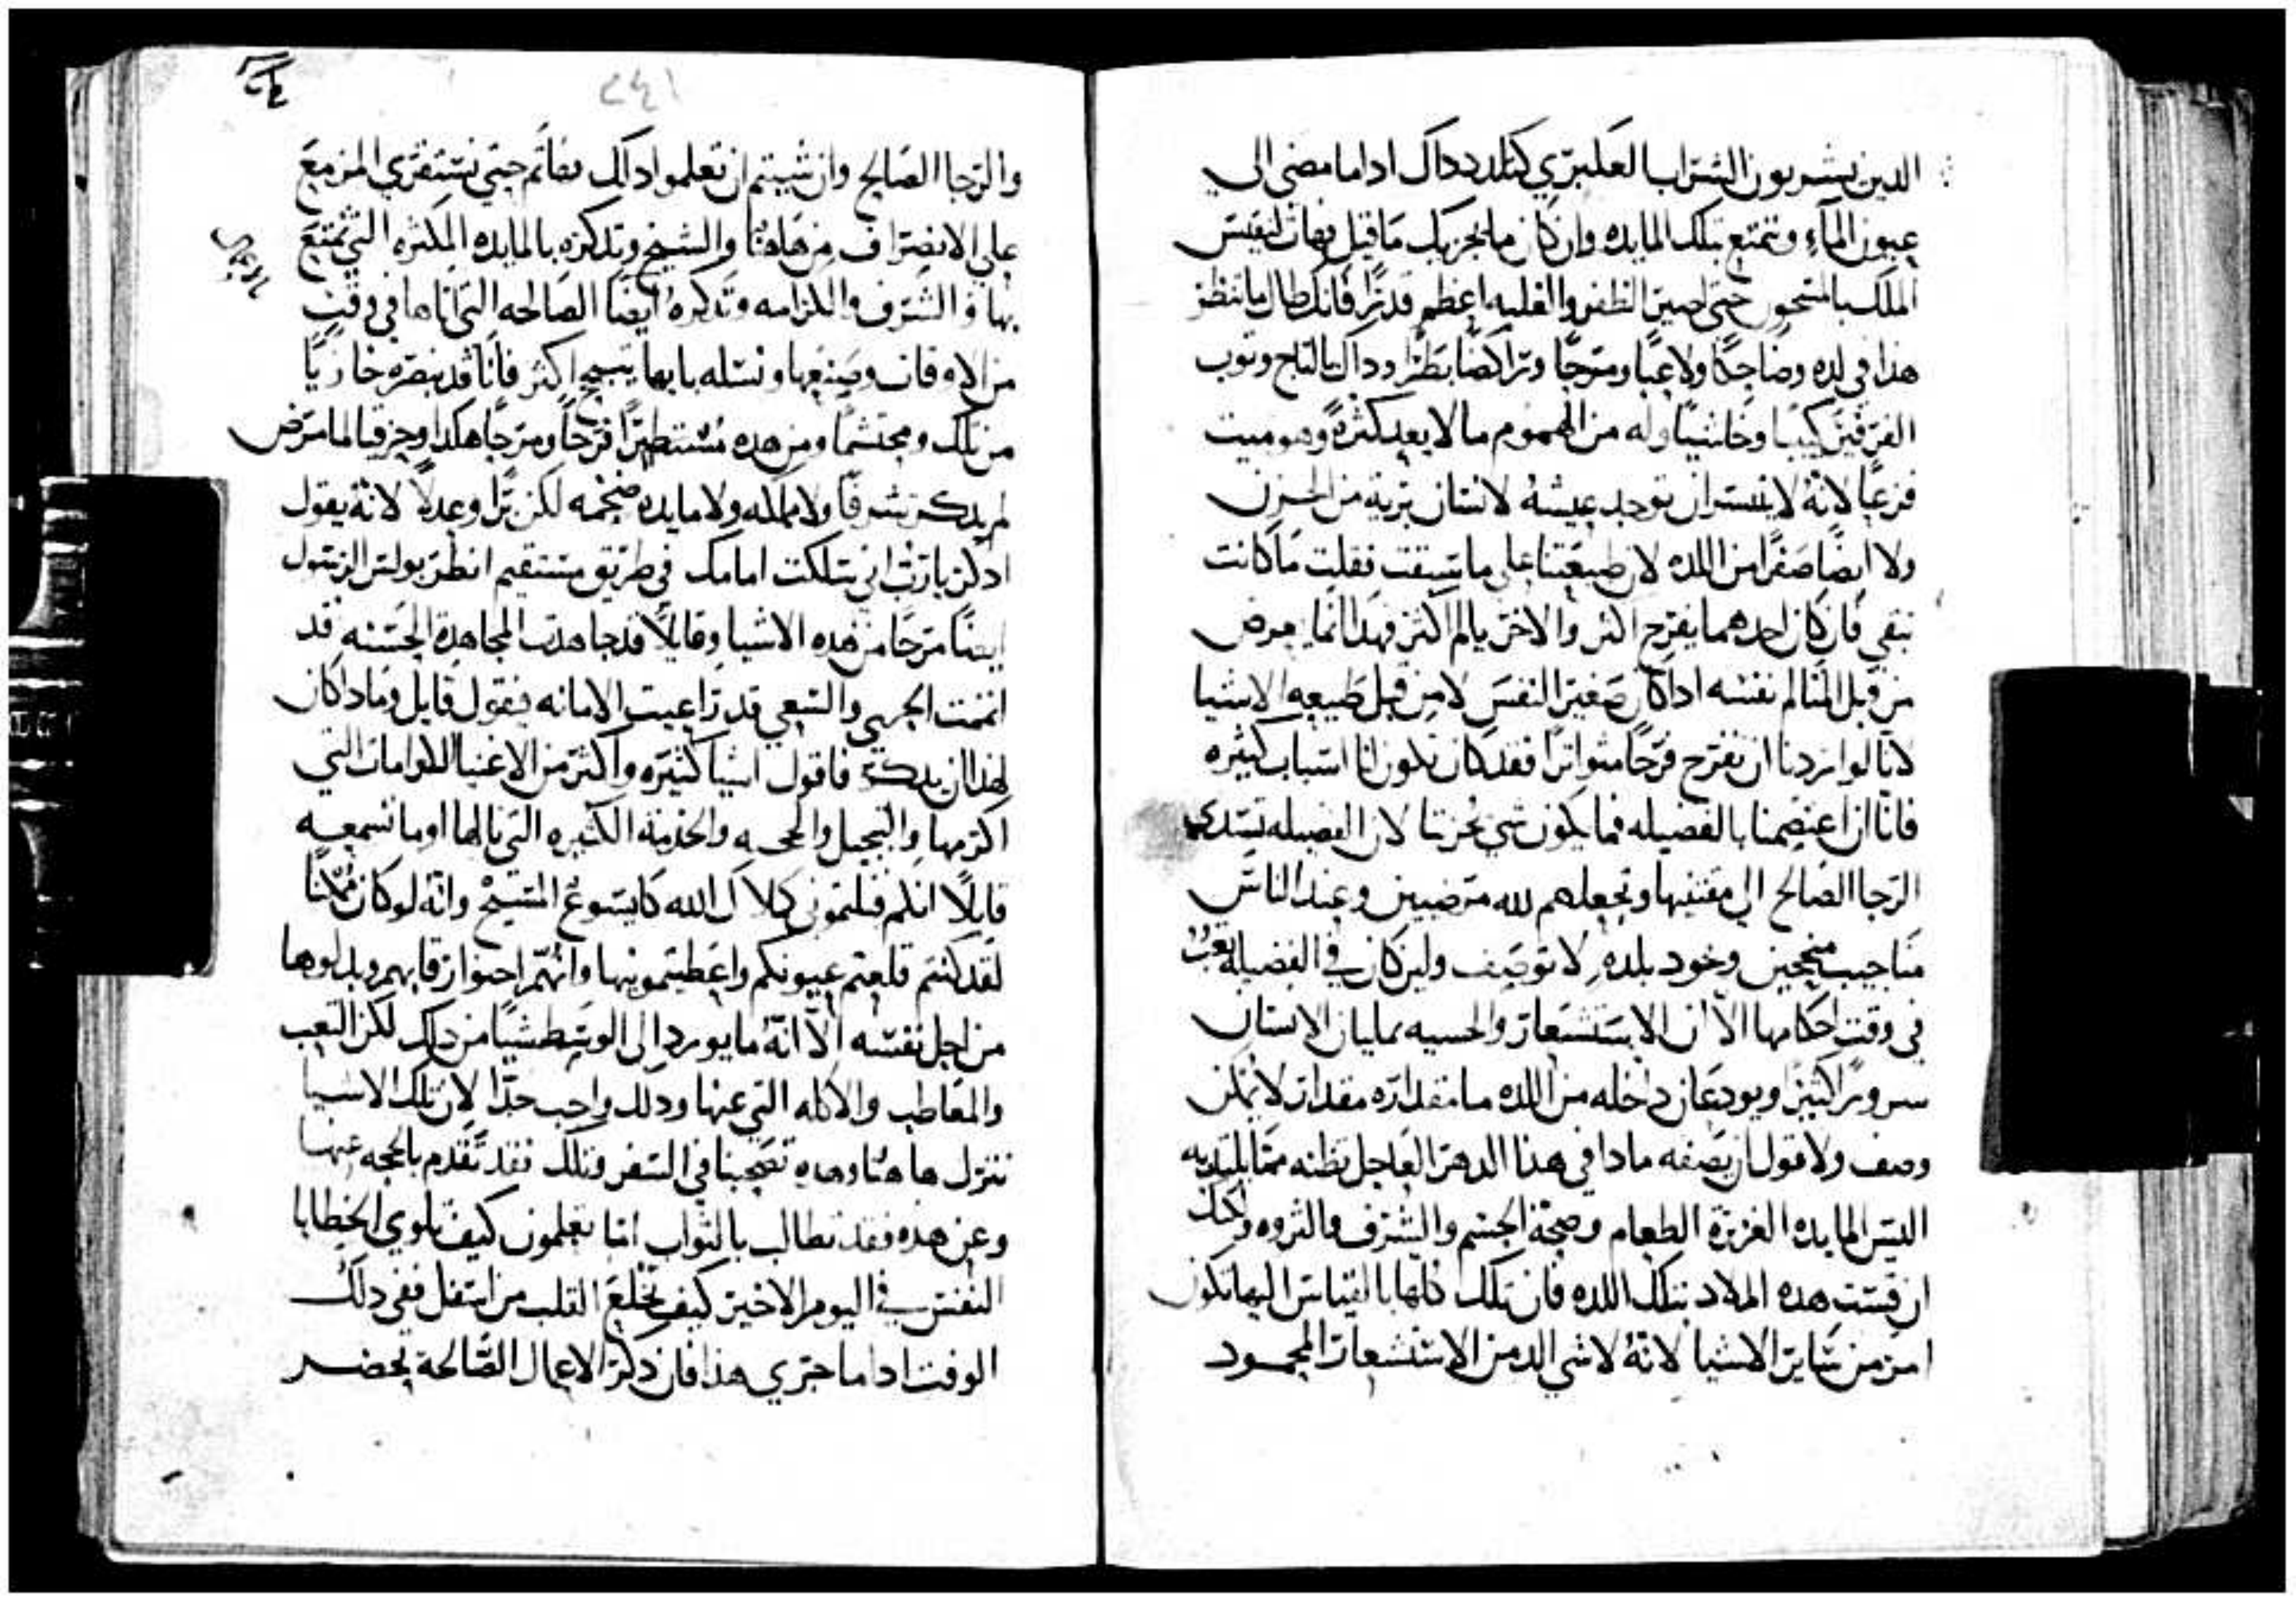 الدين يشربون الشراب العكبري كتلدد داك اداما مضى الي
عيون المآء ويتمتع بتلك المايده وان كان ما يحزبك ما قيل فهات لنفيس
الملك بالمتحور حتى اصير الظفر والغلبه اعظم قدرًا فانك طال ما تنظر
هدا في لده وضاحكًا ولاعبًا ومترجًا وتراكضًا بطرًا وداك بالتاج وتوب
الفرفير كييبا وخاشيًا وله من الهموم ما لا يعد كثرةً وهو ميت
فزعًا لانهُ لا يتيسر ان توجد عيشهُ لانسان بريه من الحزن
ولا ايضًا صفرًا من اللده لان طبيعتنا على ما سبقت فقلت ما كانت
تبقى فان كان احدهما يفرح اكثر والاخر يالم اكثر فهدا انما يعرض
من قبل المتالم نفسه اداكان صغير النفس لا من قبل طبيعه الاشيا
لاننا لو اردنا ان نفرح فرحًا متواترًا فقد كان تكون لنا اسباب كثيره
فاننا ان اعتصمنا بالفضيله فما يكون شي يحزننا لان الفضيله تسدي
الرجا الصالح الي مقتنيها وتجعلهم لله مرضيين وعند الناس
مناجيب منجحين وتجود بلدهٍ لا توصف ولين كان في الفضيله تعبٌ
في وقت احكامها الا ان الاستشعار والحسيه يمليان الانسان
سرورًا كثيرًا ويودعان داخله من اللده ما مقداره مقدار لا يمكن
وصف ولا قول ان يصفه مادا في هدا الدهر العاجل تظنه مما يلتد به
اليس المايده الغزيرة الطعام وصحة الجسم والشرف والثروه ولكنك
ان قست هده الملاد بتلك اللده فان تلك كلها بالقياس اليها تكون
امرّ من ساير الاشيا لانهُ لا شي الد من الاستشعار المحمود
٢٤١
والرجا الصالح وان شيتم ان تعلموا داك فهاتم حتي نستقري المزمع
علي الانصراف من هاهنا والشيخ وتدكره بالمايده المكثره التي تمتع
بها والشرف والكرامه وتدكره ايضًا الصالحه التي اتاها في وقتٍ
من الاوقات وصنعها ونسله بايهما يبتهج اكثر فاننا قد نبصره خازيًا
من تلك ومحتشمًا ومن هده مستطيرًا فرحًا ومرحًا هكدا وحزقيا لما مرض
لم يدكر شرفًا ولا مملكه ولا مايده ضخمه لكن برًا وعدلاً لانهُ يقول
ادكر يا رب اني سلكت امامك في طريق مستقيم انظر بولس الرسول
ايضًا مرحًا من هده الاشيا وقايلاً قد جاهدت المجاهدة الحسنه قد
اتممت الجري والسعي قد راعيت الامانه فيقول قايل وما دا كان
لهدا ان يدكر فاقول اشيا كثيره واكثر من الاغنيا الكرامات التي
اكرمها والتبجيل والمحبه والخدمة الكثيره التي نالها اوما تسمعه
قايلاً انكم قبلتموني كملاك الله كايسوع المسيح وانهُ لوكان ممكنًا
لقد كنتم قلعتم عيونكم واعطيتمونيها وانهم احنوا رقابهم وبدلوها
من اجل نفسه الا انهُ ما يورد الى الوسط شيًا من دلك لكن التعب
والمعاطب والاكله التي عنها ودلك واجب جدًا لان تلك الاشيا
تنزل هاهنا وهده تصحبنا في السفر فتلك نقد تقدم بالحجه عنها
وعن هده فقد نطالب بالثواب اما تعلمون كيف تلوي الخطايا
النفس في اليوم الاخير كيف تخلع القلب من اسفل ففي دلك
الوقت اداما جرى هذا فان دكر الاعمال الصالحة يحضر
الاعمال